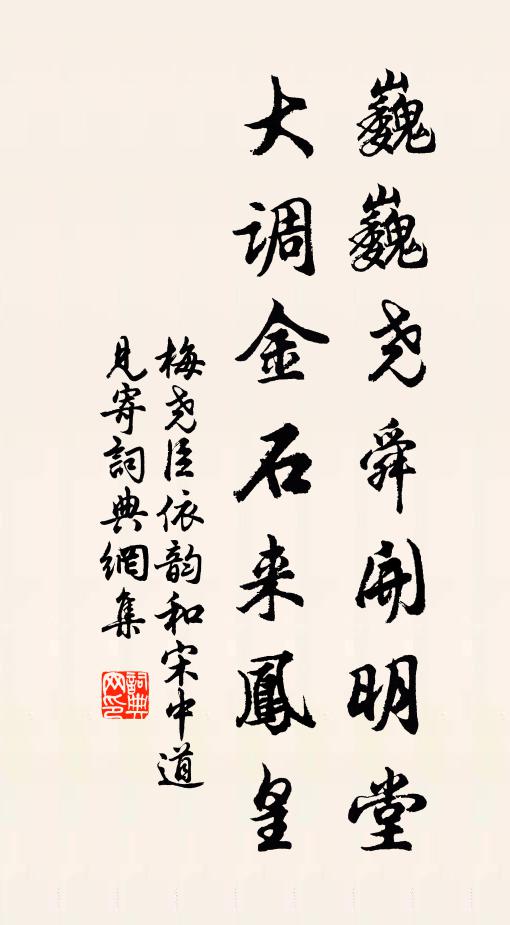 巍巍尧舜開明堂
大调金石来鳳皇
梅尧臣依韵和宋中道
見寄詞典網集
詞典
网印